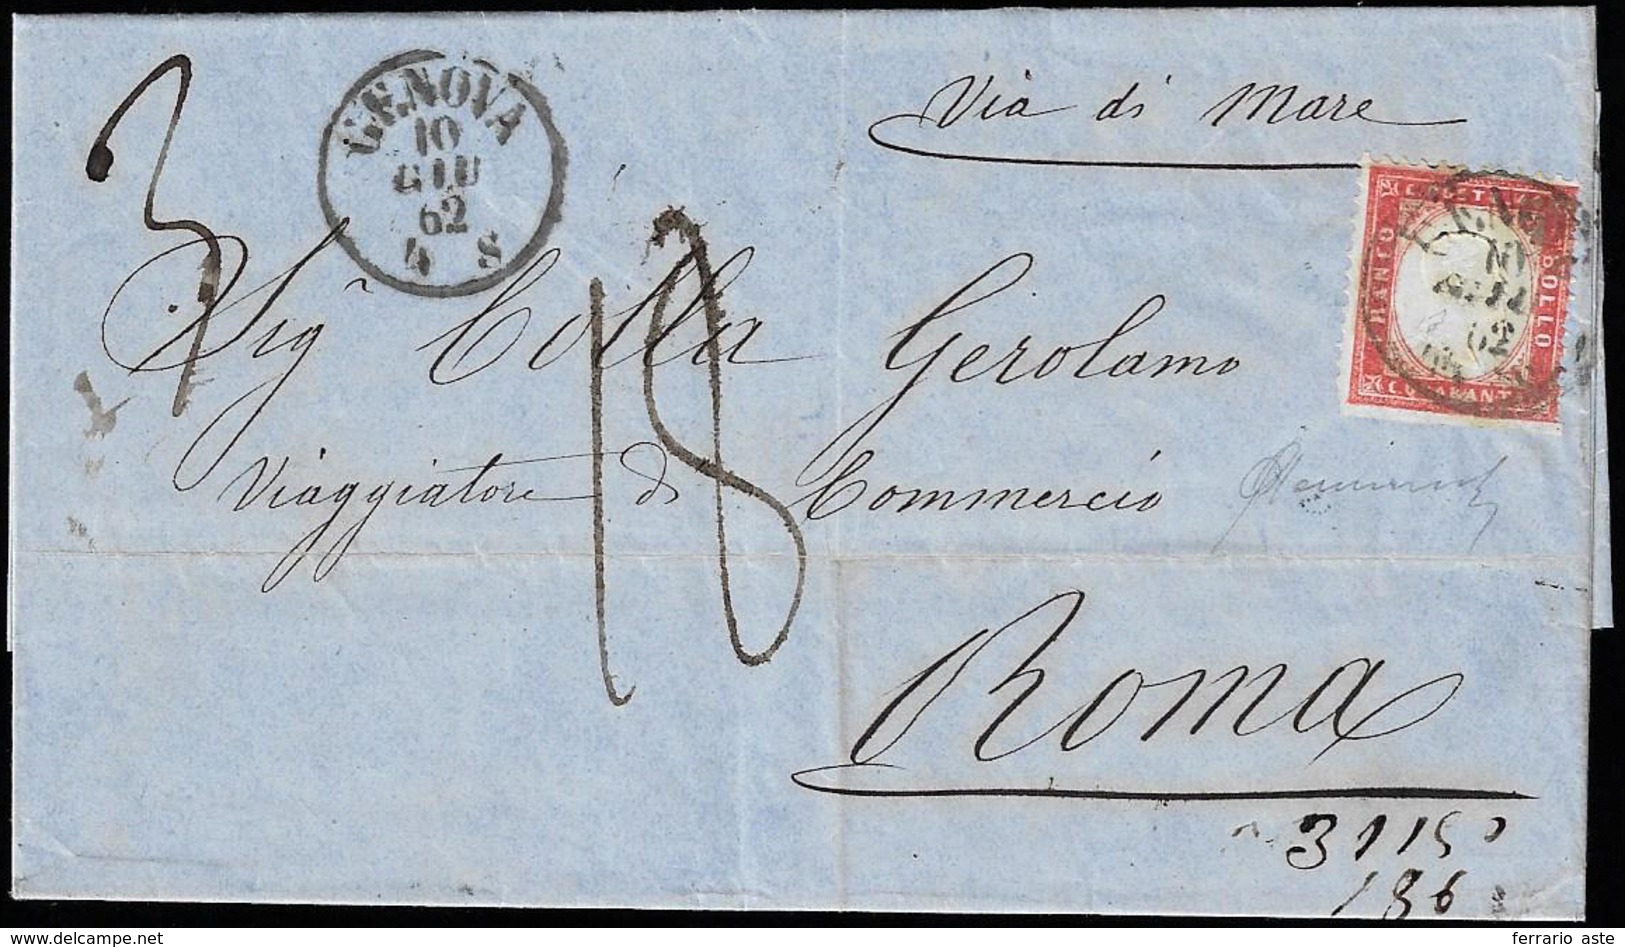 3
GENOVA
10
GIU
62
4 S
Via di Mare
C. QUARANTA
FRANCO
BOLLO
GENOVA
10
GIU
62
Sigr Colla Gerolamo
18
Viaggiatore di Commercio
Roma
3115
186
ferrario aste